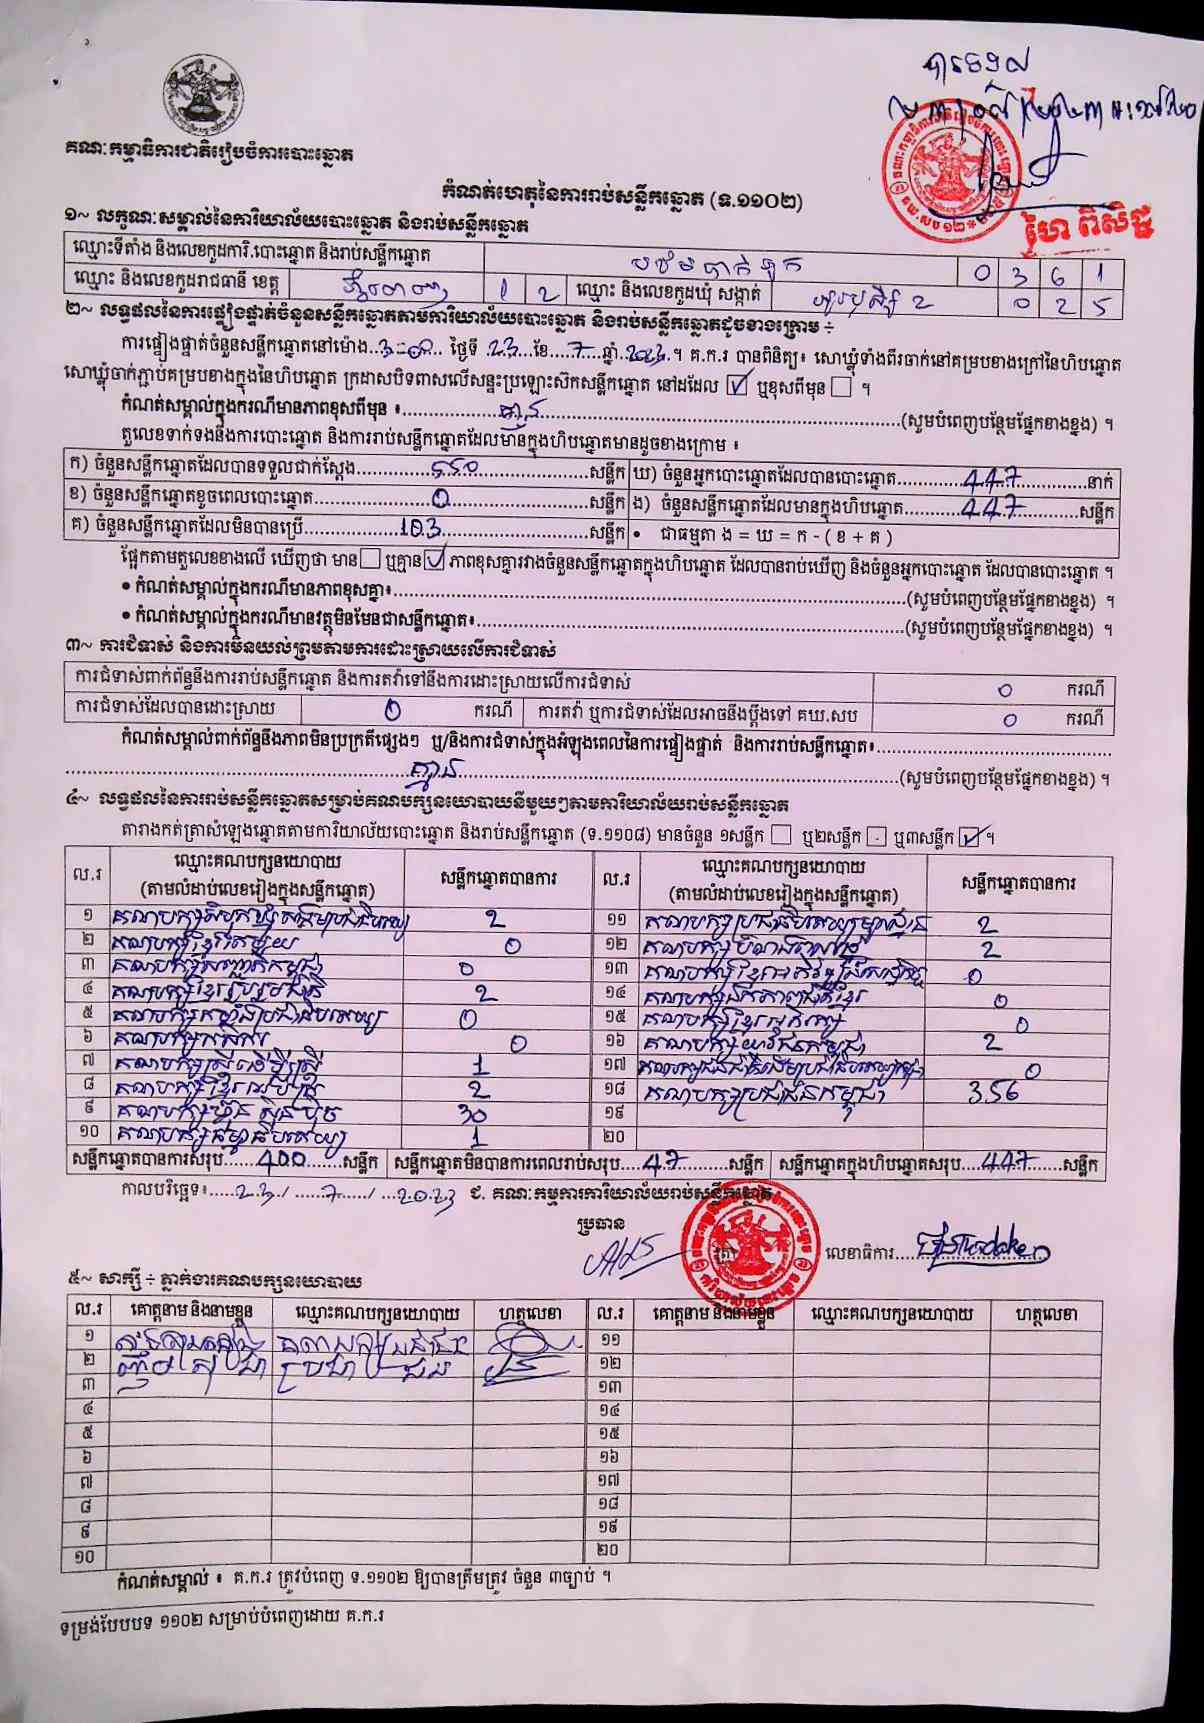 គណៈកម្មាធិការជាតិរៀបចំការបោះឆ្នោត
ហៃ ពិសិដ្ឋ
កំណត់ហេតុនៃការរាប់សន្លឹកឆ្នោត (ទ.១១០២)
១~ លក្ខណៈសម្គាល់នៃការិយាល័យបោះឆ្នោត និងរាប់សន្លឹកឆ្នោត
ឈ្មោះទីតាំង និងលេខកូដការិ.បោះឆ្នោត និងរាប់សន្លឹកឆ្នោត 0 3 6 1
ឈ្មោះ និងលេខកូដរាជធានី ខេត្ត ភ្នំពេញ 1 2 ឈ្មោះ និងលេខកូដឃុំ សង្កាត់ 0 2 5
២~ លទ្ធផលនៃការផ្ទៀងផ្ទាត់ចំនួនសន្លឹកឆ្នោតតាមការិយាល័យបោះឆ្នោត និងរាប់សន្លឹកឆ្នោតដូចខាងក្រោម ÷
ការផ្ទៀងផ្ទាត់ចំនួនសន្លឹកឆ្នោតនៅម៉ោង..3-00.. ថ្ងៃទី ..23..ខែ..7..ឆ្នាំ..2023..។ គ.ក.រ បានពិនិត្យ៖ សោឃ្លុំទាំងពីរចាក់នៅគម្របខាងក្រៅនៃហិបឆ្នោត
សោឃ្លុំចាក់ភ្ជាប់គម្របខាងក្នុងនៃហិបឆ្នោត ក្រដាសបិទពាសលើសន្ទះប្រឡោះស៊កសន្លឹកឆ្នោត នៅដដែល ☑ ឬខុសពីមុន ☐ ។
កំណត់សម្គាល់ក្នុងករណីមានភាពខុសពីមុន ៖.....គ្មាន.....(សូមបំពេញបន្ថែមផ្នែកខាងខ្នង) ។
តួលេខទាក់ទងនឹងការបោះឆ្នោត និងការរាប់សន្លឹកឆ្នោតដែលមានក្នុងហិបឆ្នោតមានដូចខាងក្រោម ៖
ក) ចំនួនសន្លឹកឆ្នោតដែលបានទទួលជាក់ស្តែង.....550.....សន្លឹក ឃ) ចំនួនអ្នកបោះឆ្នោតដែលបានបោះឆ្នោត.....447.....នាក់
ខ) ចំនួនសន្លឹកឆ្នោតខូចពេលបោះឆ្នោត.....0.....សន្លឹក ង) ចំនួនសន្លឹកឆ្នោតដែលមានក្នុងហិបឆ្នោត.....447.....សន្លឹក
គ) ចំនួនសន្លឹកឆ្នោតដែលមិនបានប្រើ.....103.....សន្លឹក • ជាធម្មតា ង = ឃ = ក - ( ខ + គ )
ផ្អែកតាមតួលេខខាងលើ ឃើញថា មាន ☐ ឬគ្មាន ☑ ភាពខុសគ្នារវាងចំនួនសន្លឹកឆ្នោតក្នុងហិបឆ្នោត ដែលបានរាប់ឃើញ និងចំនួនអ្នកបោះឆ្នោត ដែលបានបោះឆ្នោត ។
• កំណត់សម្គាល់ក្នុងករណីមានភាពខុសគ្នា៖.....(សូមបំពេញបន្ថែមផ្នែកខាងខ្នង) ។
• កំណត់សម្គាល់ក្នុងករណីមានវត្ថុមិនមែនជាសន្លឹកឆ្នោត៖.....(សូមបំពេញបន្ថែមផ្នែកខាងខ្នង) ។
៣~ ការជំទាស់ និងការមិនយល់ព្រមតាមការដោះស្រាយលើការជំទាស់
ការជំទាស់ពាក់ព័ន្ធនឹងការរាប់សន្លឹកឆ្នោត និងការតវ៉ាទៅនឹងការដោះស្រាយលើការជំទាស់ 0 ករណី
ការជំទាស់ដែលបានដោះស្រាយ 0 ករណី ការតវ៉ា ឬការជំទាស់ដែលអាចនឹងប្តឹងទៅ គឃ.សប 0 ករណី
កំណត់សម្គាល់ពាក់ព័ន្ធនឹងភាពមិនប្រក្រតីផ្សេងៗ ឬ/និងការជំទាស់ក្នុងអំឡុងពេលនៃការផ្ទៀងផ្ទាត់ និងការរាប់សន្លឹកឆ្នោត៖.....
.....គ្មាន.....(សូមបំពេញបន្ថែមផ្នែកខាងខ្នង) ។
៤~ លទ្ធផលនៃការរាប់សន្លឹកឆ្នោតសម្រាប់គណបក្សនយោបាយនីមួយៗតាមការិយាល័យរាប់សន្លឹកឆ្នោត
តារាងកត់ត្រាសំឡេងឆ្នោតតាមការិយាល័យបោះឆ្នោត និងរាប់សន្លឹកឆ្នោត (ទ.១១០៨) មានចំនួន ១សន្លឹក ☐ ឬ២សន្លឹក ☐ ឬ៣សន្លឹក ☑ ។
ល.រ ឈ្មោះគណបក្សនយោបាយ (តាមលំដាប់លេខរៀងក្នុងសន្លឹកឆ្នោត) សន្លឹកឆ្នោតបានការ ល.រ ឈ្មោះគណបក្សនយោបាយ (តាមលំដាប់លេខរៀងក្នុងសន្លឹកឆ្នោត) សន្លឹកឆ្នោតបានការ
១ 2 ១១ 2
២ 0 ១២ 2
៣ 0 ១៣ 0
៤ 2 ១៤ 0
៥ 0 ១៥ 0
៦ គណបក្សកសិករ 0 ១៦ 2
៧ គណបក្សស្រីដើម្បីស្រី 1 ១៧ 0
៨ 2 ១៨ គណបក្សប្រជាជនកម្ពុជា 356
៩ គណបក្សហ៊្វុនស៊ិនប៉ិច 30 ១៩
១០ គណបក្សធម្មាធិបតេយ្យ 1 ២០
សន្លឹកឆ្នោតបានការសរុប.....400.....សន្លឹក សន្លឹកឆ្នោតមិនបានការពេលរាប់សរុប.....47.....សន្លឹក សន្លឹកឆ្នោតក្នុងហិបឆ្នោតសរុប.....447.....សន្លឹក
កាលបរិច្ឆេទ៖.....23./.....7...../.....2023 ជ. គណៈកម្មការការិយាល័យរាប់សន្លឹកឆ្នោត
ប្រធាន
លេខាធិការ
៥~ សាក្សី ÷ ភ្នាក់ងារគណបក្សនយោបាយ
ល.រ គោត្តនាម និងនាមខ្លួន ឈ្មោះគណបក្សនយោបាយ ហត្ថលេខា ល.រ គោត្តនាម និងនាមខ្លួន ឈ្មោះគណបក្សនយោបាយ ហត្ថលេខា
១ ១១
២ ១២
៣ ១៣
៤ ១៤
៥ ១៥
៦ ១៦
៧ ១៧
៨ ១៨
៩ ១៩
១០ ២០
កំណត់សម្គាល់ ៖ គ.ក.រ ត្រូវបំពេញ ទ.១១០២ ឱ្យបានត្រឹមត្រូវ ចំនួន ៣ច្បាប់ ។
ទម្រង់បែបបទ ១១០២ សម្រាប់បំពេញដោយ គ.ក.រ